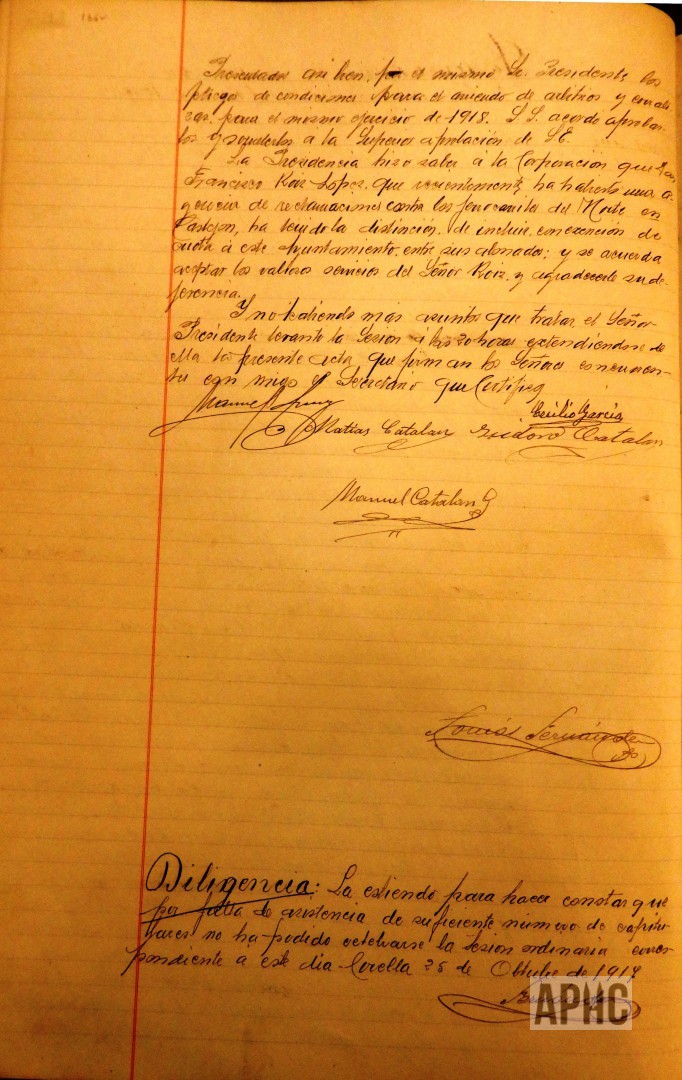 Presentados asi bien, por el mismo Sr. Presidente, los
pliegos de condiciones para el arriendo de arbitrios y corrali
zas, para el mismo ejercicio de 1918. S.S. acordo aprobar
los y someterlos a la Superior aprobacion de S.E.
La Presidencia hizo saber á la Corporacion que Don
Francisco Roiz Lopez, que recientemente, ha habierto una a-
gencia de reclamaciones contra los ferrocarriles del Norte en
Castejon, ha tenido la distinción, de incluir con exencion de
cuota á este Ayuntamiento, entre sus abonados; y se acuerda
aceptar los valiosos servicios del Señor Roiz, y agradecerle su de-
ferencia.
Y no habiendo más asuntos que tratar, el Señor
Presidente levanta la Sesion á las 20 horas extendiendose de
ella la presente acta que firman los Señores concurren-
tes con migo el Secretario que Certifico
Manuel
Cecilio García
Matias Catalan Isidoro Catalan
Manuel Catalan G
Tomás Fernández
Diligencia: La extiendo para hacer constar que
por falta de asistencia de suficiente número de capitu
lares no ha podido celebrarse la sesion ordinaria corres
pondiente a este dia Corella 25 de Obtubre de 1917
APHC